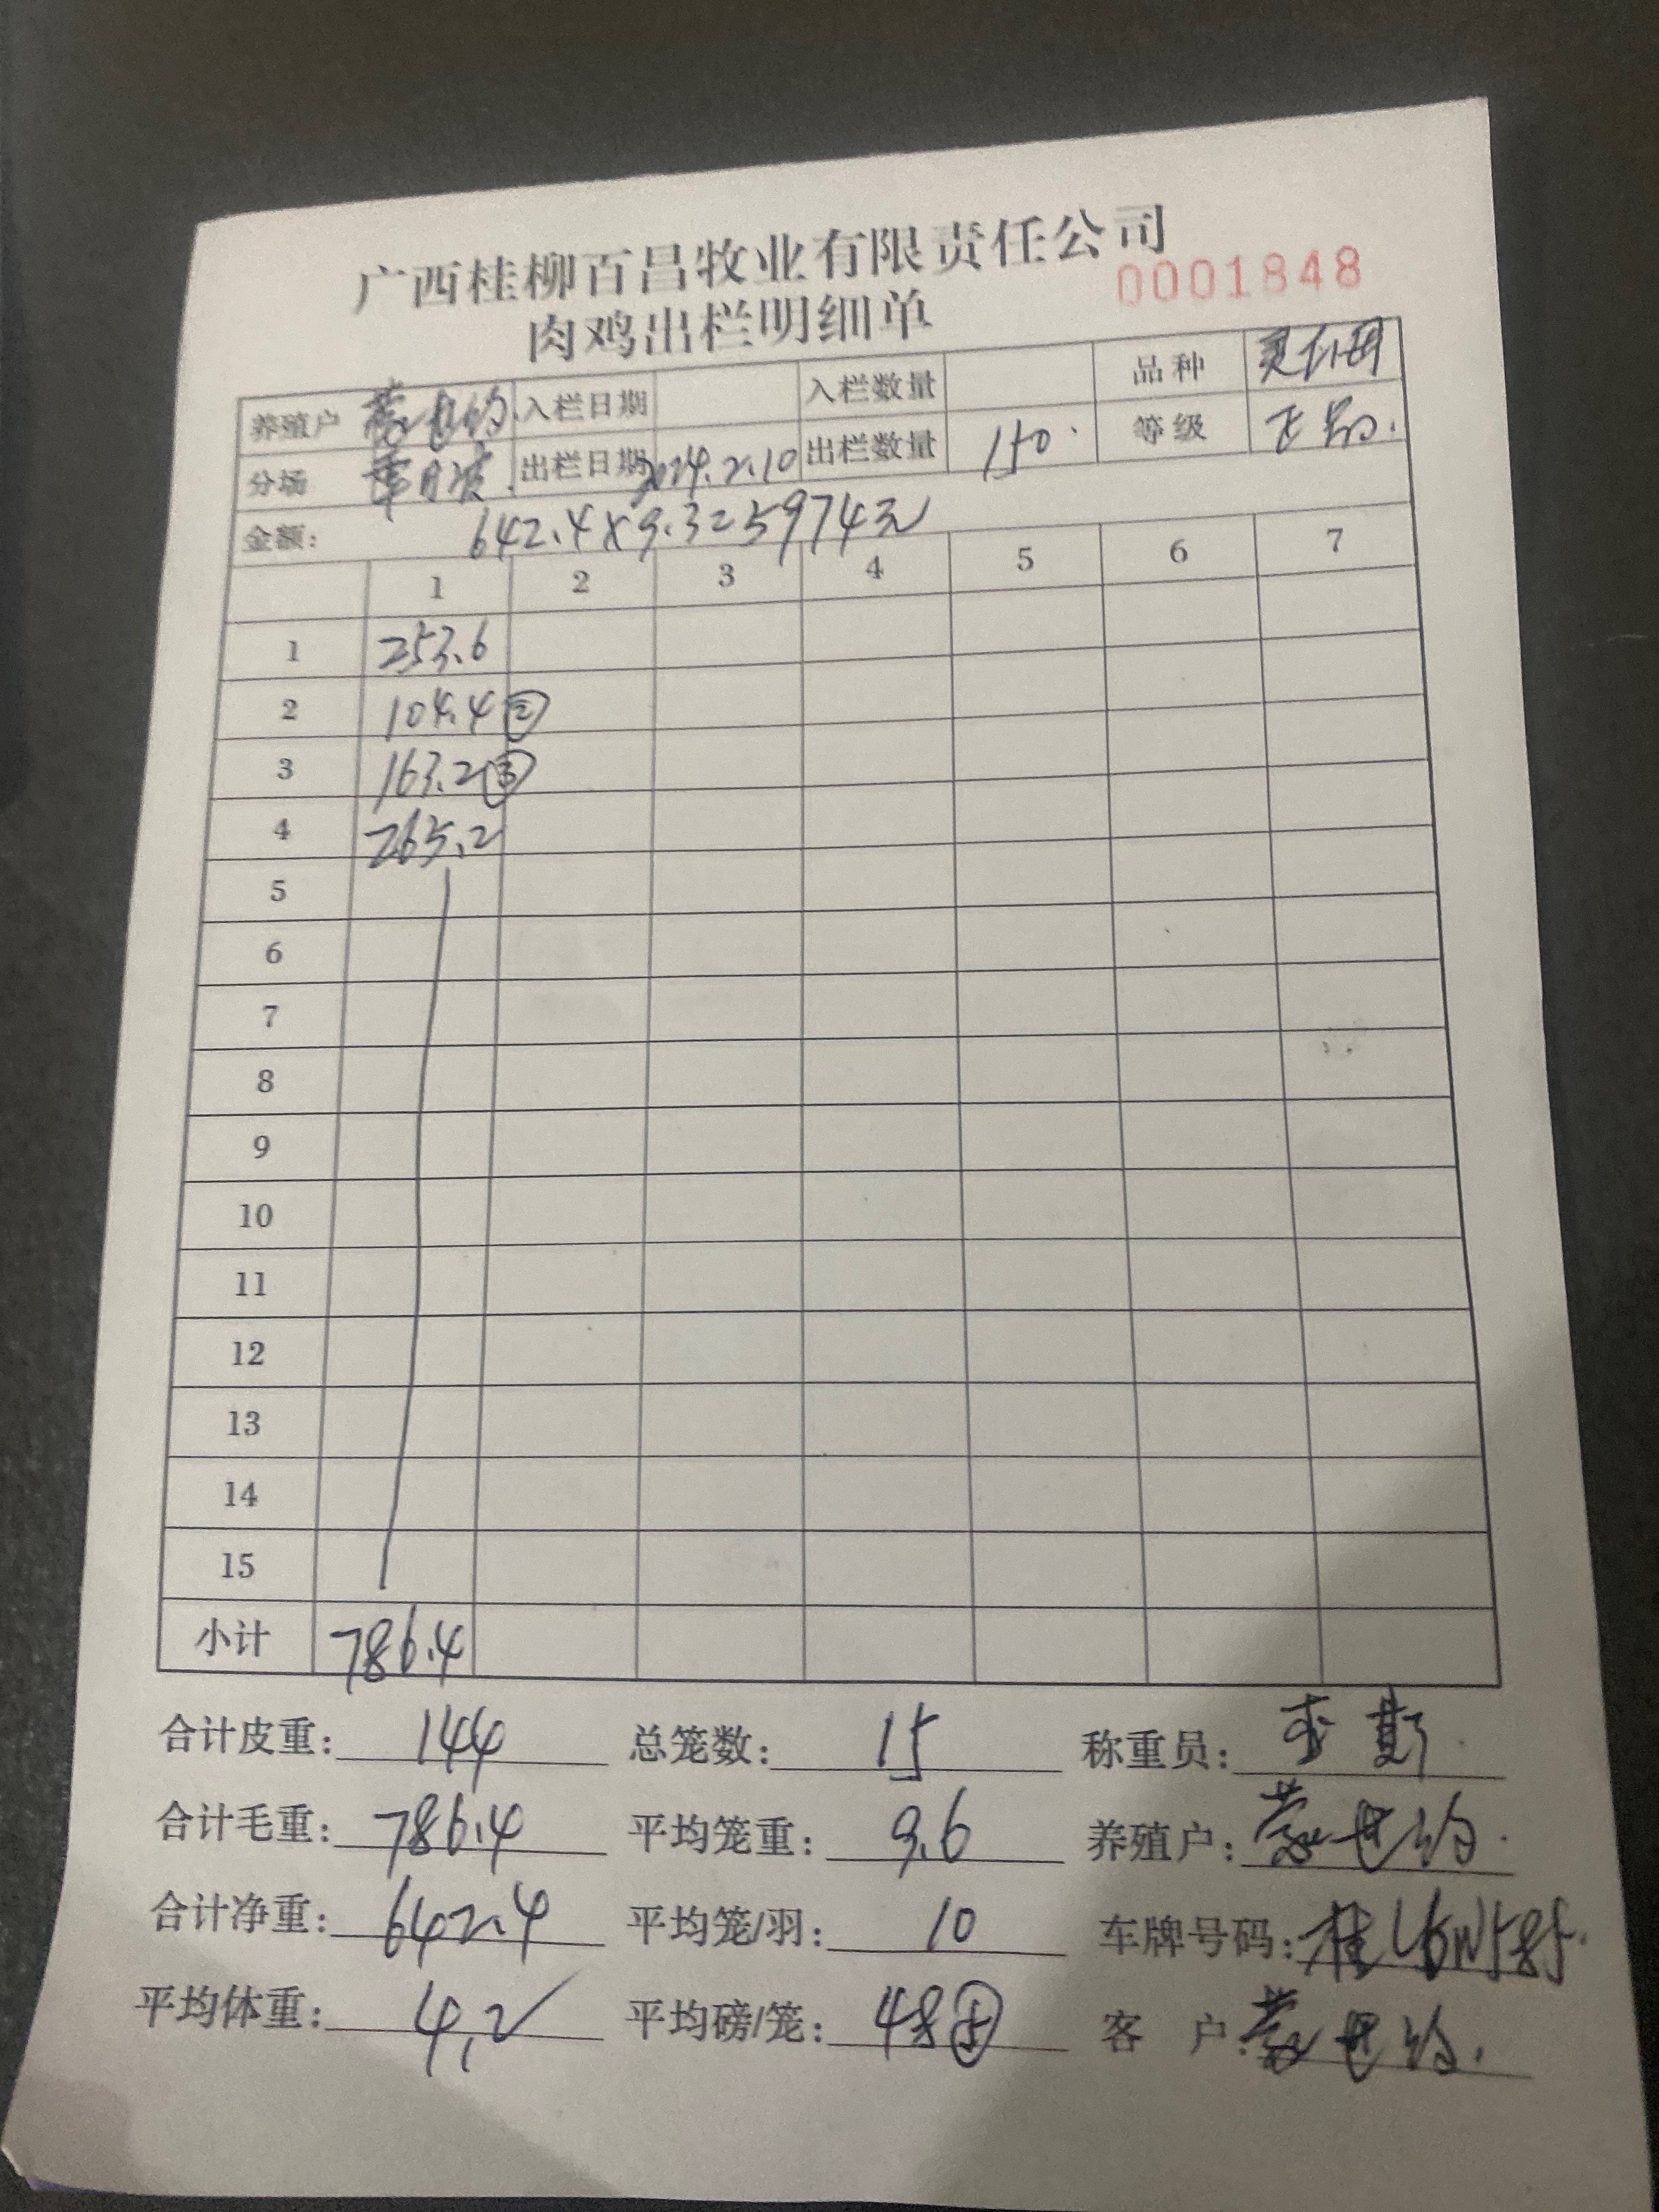 广西桂柳百昌牧业有限责任公司
0001848
肉鸡出栏明细单
养殖户 蒙世 入栏日期 入栏数量 品种
分场 出栏日期 2024.2.10 出栏数量 150 等级
金额: 642.4×9.3=5974元
1 2 3 4 5 6 7
1 253.6
2 104.4 ②
3 163.2 ③
4 265.2
5
6
7
8
9
10
11
12
13
14
15
小计 786.4
合计皮重: 144 总笼数: 15 称重员:
合计毛重: 786.4 平均笼重: 9.6 养殖户: 蒙世
合计净重: 642.4 平均笼/羽: 10 车牌号码: 桂
平均体重: 4.2 平均磅/笼: 48 客 户: 蒙世